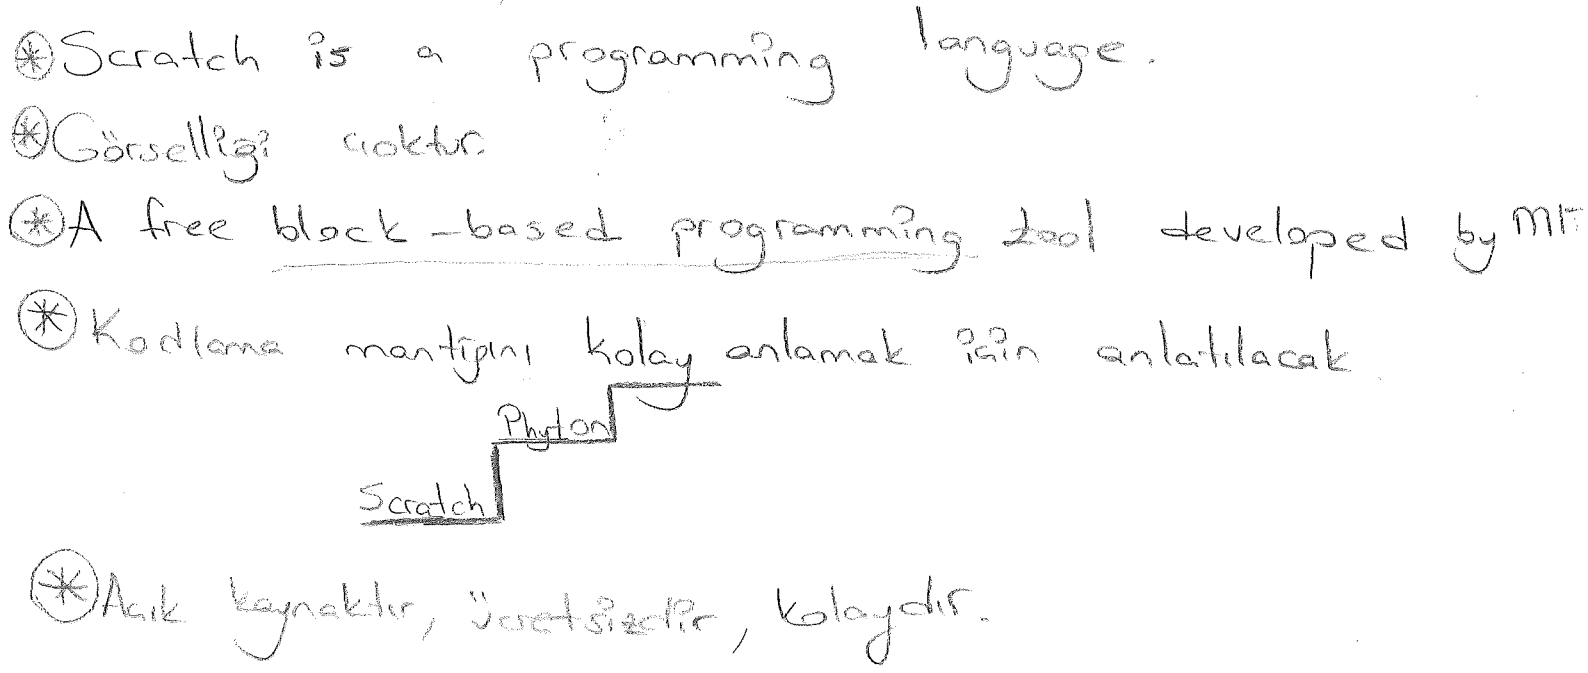 * Scratch is a programming language.
* Görselliği çoktur.
* A free block-based programming tool developed by MIT
* Kodlama mantığını kolay anlamak için anlatılacak
Phyton
Scratch
* Açık kaynaktır, ücretsizdir, kolaydır.